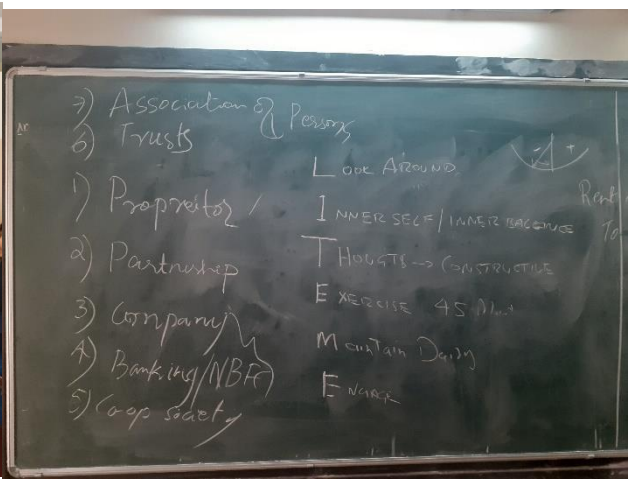 7) Association of Persons
6) Trusts
1) Propreitor
2) Partnership
3) Company
4) Banking/NBFC
5) Co-op society
LOOK AROUND
INNER SELF/INNER
THOUGTS → CONSTRUCTIVE
EXERCISE 45
Maintain Dairy
- +
Rent
To